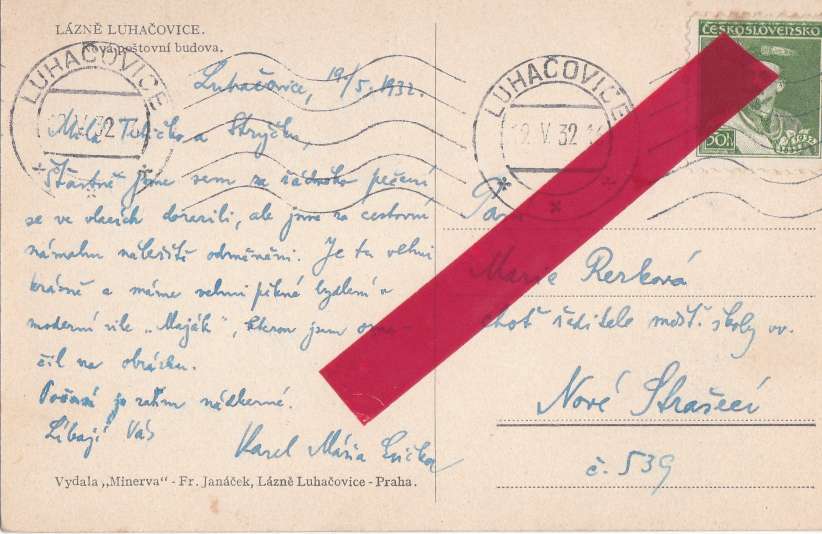 LÁZNĚ LUHAČOVICE.
Nová poštovní budova.
LUHAČOVICE
LUHAČOVICE
12 V. 32
ČESKOSLOVENSKO
50h
Luhačovice, 19/5. 1932.
Milá Tetičko a Strýčku,
Šťastně jsme sem za řádného pečení
se ve vlacích dorazili, ale jsme za cestovní
námahu náležitě odměněni. Je tu velmi
krásně a máme velmi pěkné bydlení v
moderní vile „Maják", kterou jsem ozna-
čil na obrázku.
Počasí je zatím nádherné.
Líbají Vás
Karel Mária Evička
Marie Rerková
choť ředitele měšť. školy vv.
Nové Strašecí
č. 539
Vydala „Minerva" - Fr. Janáček, Lázně Luhačovice - Praha.